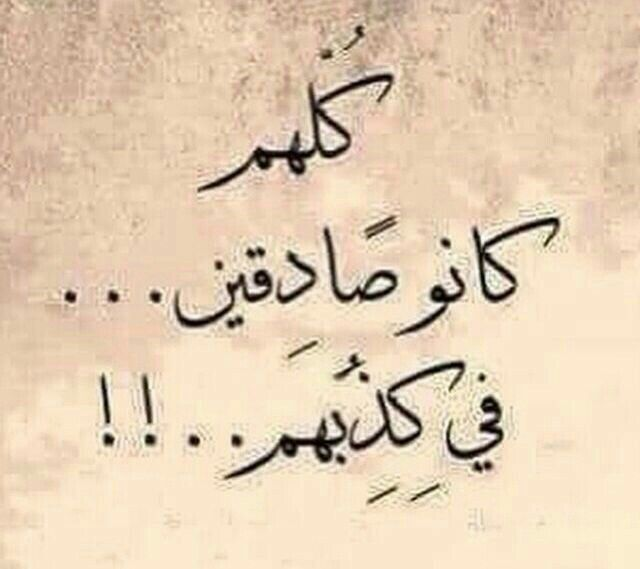 كُلهم
كانو صًادَقين...
في كِذِبُهَم..!!